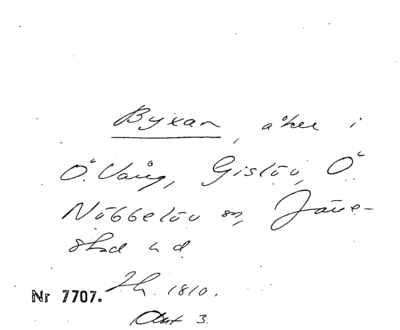 Byxan, åker i
Ö. Vång, Gislöv, Ö.
Nöbbelöv sn, Järre-
stad hd.
Nr 7707. Zh. 1810.
Akt 3.